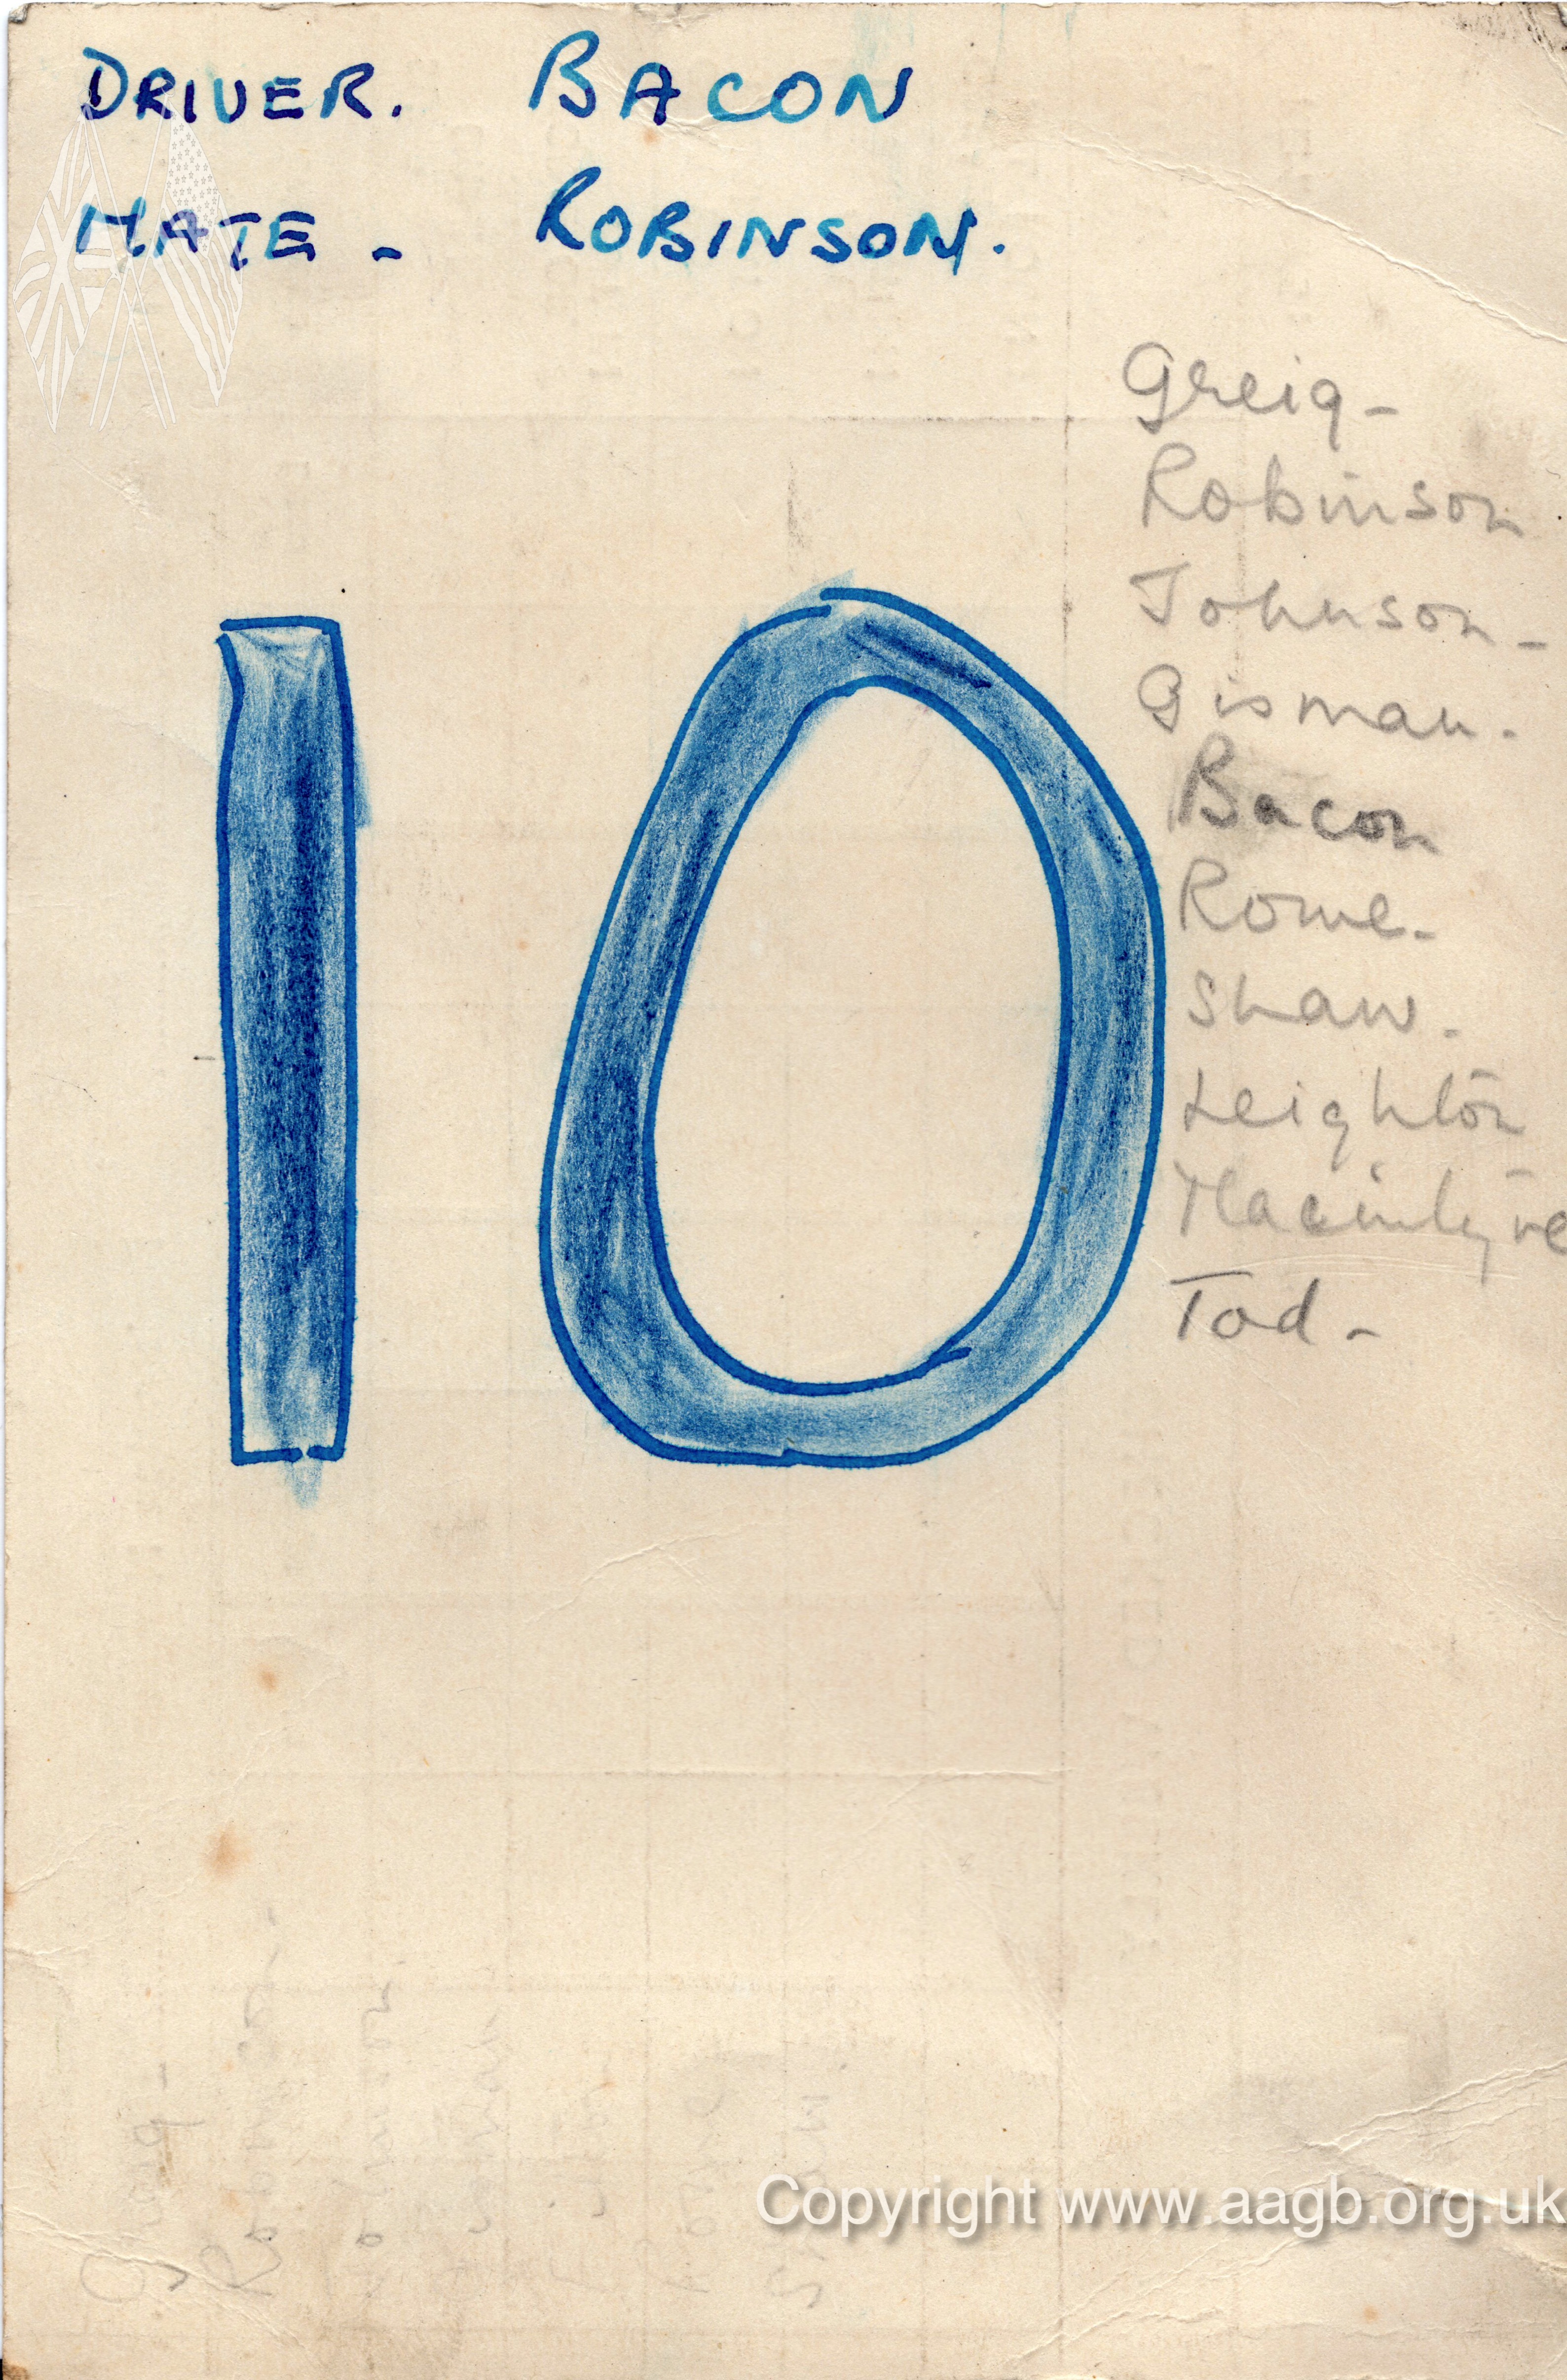 DRIVER. BACON
MATE - ROBINSON.
Greig -
Robinson
Johnson -
Gisman.
Bacon
Rome.
Shaw.
Leighton
Macintyre
Tod -
10
Copyright www.aagb.org.uk